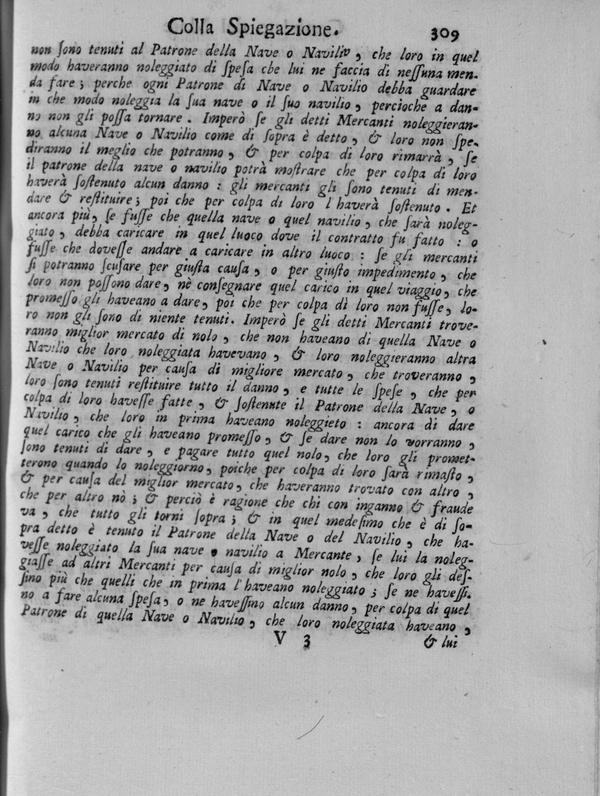 Colla Spiegazione. 309
non ſono tenuti al Patrone della Nave o Navilio, che loro in quel
modo haveranno noleggiato di ſpeſa che lui ne faccia di neſſuna men-
da fare; perche ogni Patrone di Nave o Navilio debba guardare
in che modo noleggia la ſua nave o il ſuo navilio, percioche a dan-
no non gli poſſa tornare. Imperò ſe gli detti Mercanti noleggieran-
no alcuna Nave o Navilio come di ſopra è detto, & loro non ſpe-
diranno il meglio che potranno, & per colpa di loro rimarrà, ſe
il patrone della nave o navilio potrà moſtrare che per colpa di loro
haverà ſoſtenuto alcun danno: gli mercanti gli ſono tenuti di men-
dare & reſtituire; poi che per colpa di loro l'haverà ſoſtenuto. Et
ancora più, ſe fuſſe che quella nave o quel navilio, che ſarà noleg-
giato, debba caricare in quel luoco dove il contratto fu fatto: o
fuſſe che doveſſe andare a caricare in altro luoco: ſe gli mercanti
ſi potranno ſcuſare per giuſta cauſa, o per giuſto impedimento, che
loro non poſſono dare, nè conſegnare quel carico in quel viaggio, che
promeſſo gli haveano a dare, poi che per colpa di loro non fuſſe, lo-
ro non gli ſono di niente tenuti. Imperò ſe gli detti Mercanti trove-
ranno miglior mercato di nolo, che non haveano di quella Nave o
Navilio che loro noleggiata havevano, & loro noleggieranno altra
Nave o Navilio per cauſa di migliore mercato, che troveranno,
loro ſono tenuti reſtituire tutto il danno, e tutte le ſpeſe, che per
colpa di loro haveſſe fatte, & ſoſtenute il Patrone della Nave, o
Navilio, che loro in prima haveano noleggieto: ancora di dare
quel carico che gli haveano promeſſo, & ſe dare non lo vorranno,
ſono tenuti di dare, e pagare tutto quel nolo, che loro gli promet-
terono quando lo noleggiorno, poiche per colpa di loro ſarà rimaſto,
& per cauſa del miglior mercato, che haveranno trovato con altro,
che per altro nò; & perciò è ragione che chi con inganno & fraude
va, che tutto gli torni ſopra; & in quel medeſimo che è di ſo-
pra detto è tenuto il Patrone della Nave o del Navilio, che ha-
veſſe noleggiato la ſua nave o navilio a Mercante, ſe lui la noleg-
giaſſe ad altri Mercanti per cauſa di miglior nolo, che loro gli deſ-
ſino più che quelli che in prima l'haveano noleggiato; ſe ne haveſſi-
no a fare alcuna ſpeſa, o ne haveſſino alcun danno, per colpa di quel
Patrone di quella Nave o Navilio, che loro noleggiata haveano,
V 3 & lui